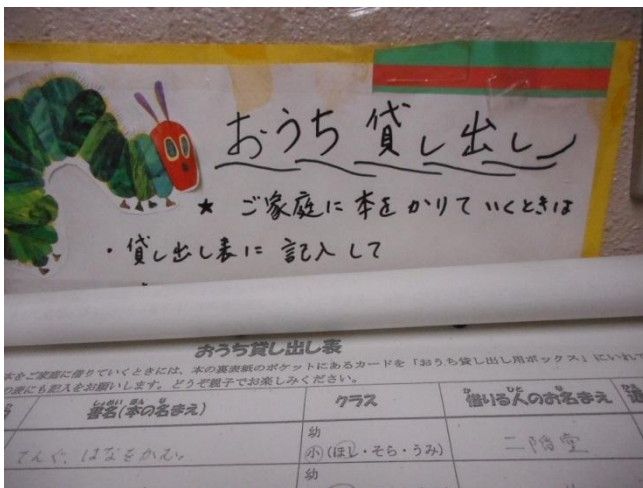 おうち貸し出し
★ ご家庭に本をかりていくときは
・貸し出し表に記入して
おうち貸し出し表
本をご家庭に借りていくときには、本の裏表紙のポケットにあるカードを「おうち貸し出し用ボックス」にいれて
の表にも記入をお願いします。どうぞ親子でお楽しみください。
書名(本の名まえ) クラス 借りる人のお名まえ
てんぐ、はなをかむ。 幼 二階堂
小(ほし・そら・うみ)
幼